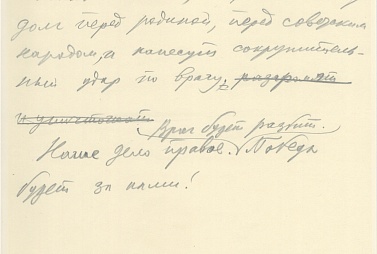 долг перед родиной, перед советским
народом, и нанесут сокрушитель-
ный удар по врагу, разгромят
и уничтожат
Враг будет разбит.
Наше дело правое. Победа
будет за нами!